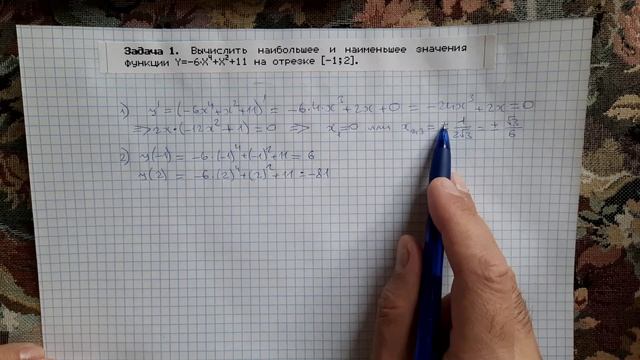 Задача 1. Вычислить наибольшее и наименьшее значения
функции Y=-6·X⁴+X²+11 на отрезке [-1;2].
1) y' = (-6x⁴+x²+11)' = -6·4·x³+2x+0 = -24x³+2x=0
=> 2x·(-12x²+1)=0 => x₁=0 или x₂,₃= ± 1/(2√3) = ± √3/6
2) y(-1) = -6·(-1)⁴+(-1)²+11 = 6
y(2) = -6·(2)⁴+(2)²+11 = -81